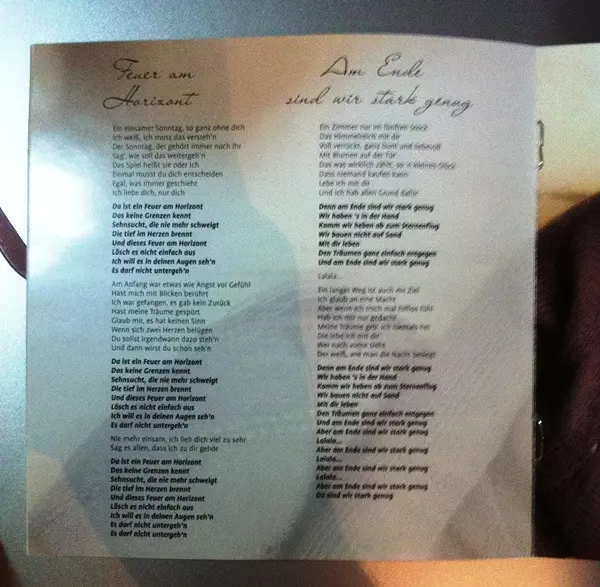 Feuer am
Horizont
Ein einsamer Sonntag, so ganz ohne dich
Ich weiß, ich muss das versteh'n
Der Sonntag, der gehört immer noch ihr
Sag', wie soll das weitergeh'n
Das Spiel heißt sie oder ich
Einmal musst du dich entscheiden
Egal, was immer geschieht
Ich liebe dich, nur dich
Da ist ein Feuer am Horizont
Das keine Grenzen kennt
Sehnsucht, die nie mehr schweigt
Die tief im Herzen brennt
Und dieses Feuer am Horizont
Lösch es nicht einfach aus
Ich will es in deinen Augen seh'n
Es darf nicht untergeh'n
Am Anfang war etwas wie Angst vor Gefühl
Hast mich mit Blicken berührt
Ich war gefangen, es gab kein Zurück
Hast meine Träume gespürt
Glaub mir, es hat keinen Sinn
Wenn sich zwei Herzen belügen
Du sollst irgendwann dazu steh'n
Und dann wirst du schon seh'n
Da ist ein Feuer am Horizont
Das keine Grenzen kennt
Sehnsucht, die nie mehr schweigt
Die tief im Herzen brennt
Und dieses Feuer am Horizont
Lösch es nicht einfach aus
Ich will es in deinen Augen seh'n
Es darf nicht untergeh'n
Nie mehr einsam, ich lieb dich viel zu sehr
Sag es allen, dass ich zu dir gehör
Da ist ein Feuer am Horizont
Das keine Grenzen kennt
Sehnsucht, die nie mehr schweigt
Die tief im Herzen brennt
Und dieses Feuer am Horizont
Lösch es nicht einfach aus
Ich will es in deinen Augen seh'n
Es darf nicht untergeh'n
Es darf nicht untergeh'n
Am Ende
sind wir stark genug
Ein Zimmer nur im fünften Stock
Das Himmelreich mit dir
Voll verrückt, ganz bunt und liebevoll
Mit Blumen auf der Tür
Das was wirklich zählt, so'n kleines Glück
Dass niemand kaufen kann
Lebe ich mit dir
Und ich hab allen Grund dafür
Denn am Ende sind wir stark genug
Wir haben 's in der Hand
Komm wir heben ab zum Sternenflug
Wir bauen nicht auf Sand
Mit dir leben
Den Träumen ganz einfach entgegen
Und am Ende sind wir stark genug
Lalala...
Ein langer Weg ist auch ein Ziel
Ich glaub an eine Macht
Aber wenn ich mich mal hilflos fühl
Hab ich mir nur gedacht
Meine Träume geb' ich niemals her
Die lebe ich mit dir
Wer nach vorne sieht
Der weiß, wie man die Nacht besiegt
Denn am Ende sind wir stark genug
Wir haben 's in der Hand
Komm wir heben ab zum Sternenflug
Wir bauen nicht auf Sand
Mit dir leben
Den Träumen ganz einfach entgegen
Und am Ende sind wir stark genug
Aber am Ende sind wir stark genug
Lalala...
Aber am Ende sind wir stark genug
Lalala...
Aber am Ende sind wir stark genug
Lalala...
Aber am Ende sind wir stark genug
Da sind wir stark genug